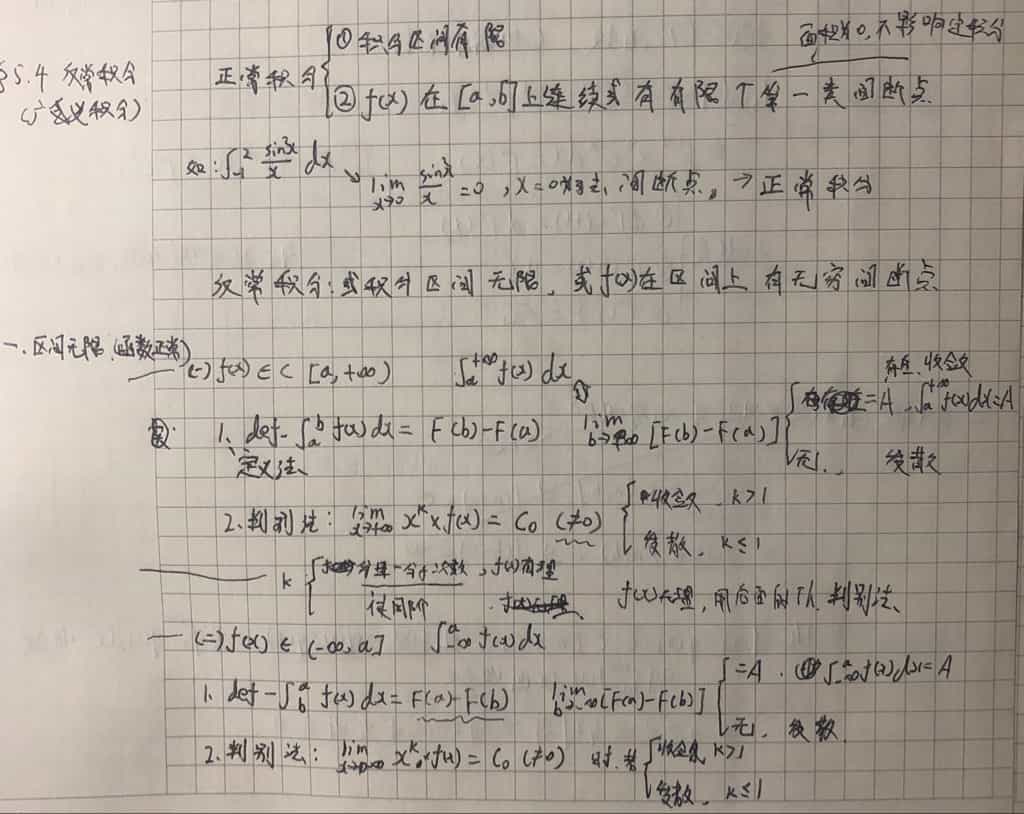 §5.4 反常积分
(广义积分)
正常积分 { ① 积分区间有限
面积为0,不影响定积分
② f(x) 在 [a,b] 上连续或有有限个第一类间断点
如: ∫₋₁² sin³x/x dx ↘ lim x→0 sin³x/x = 0, x=0 为 间断点, → 正常积分
反常积分: 或积分区间无限, 或 f(x) 在区间上有无穷间断点
一. 区间无限 (函数正常)
(一) f(x) ∈ C [a,+∞) ∫ₐ⁺∞ f(x) dx ①
1. def - ∫ₐᵇ f(x) dx = F(b)-F(a) lim b→+∞ [F(b)-F(a)] { =A ∫ₐ⁺∞ f(x)dx=A 收敛
定义法 无. 发散
2. 判别法: lim x→+∞ xᵏ × f(x) = C₀ (≠0) { 收敛. k>1
发散. k≤1
k { 分母-分子次数, f(x)有理
找同阶 f(x)无理, 用后面的Th. 判别法
(二) f(x) ∈ (-∞,a] ∫₋∞ᵃ f(x) dx
1. def - ∫_bᵃ f(x) dx = F(a)-F(b) lim b→-∞ [F(a)-F(b)] { =A. ∫₋∞ᵃ f(x)dx=A
无. 发散
2. 判别法: lim x→-∞ xᵏ·f(x) = C₀ (≠0) 时. 若 { 收敛, k>1
发散. k≤1